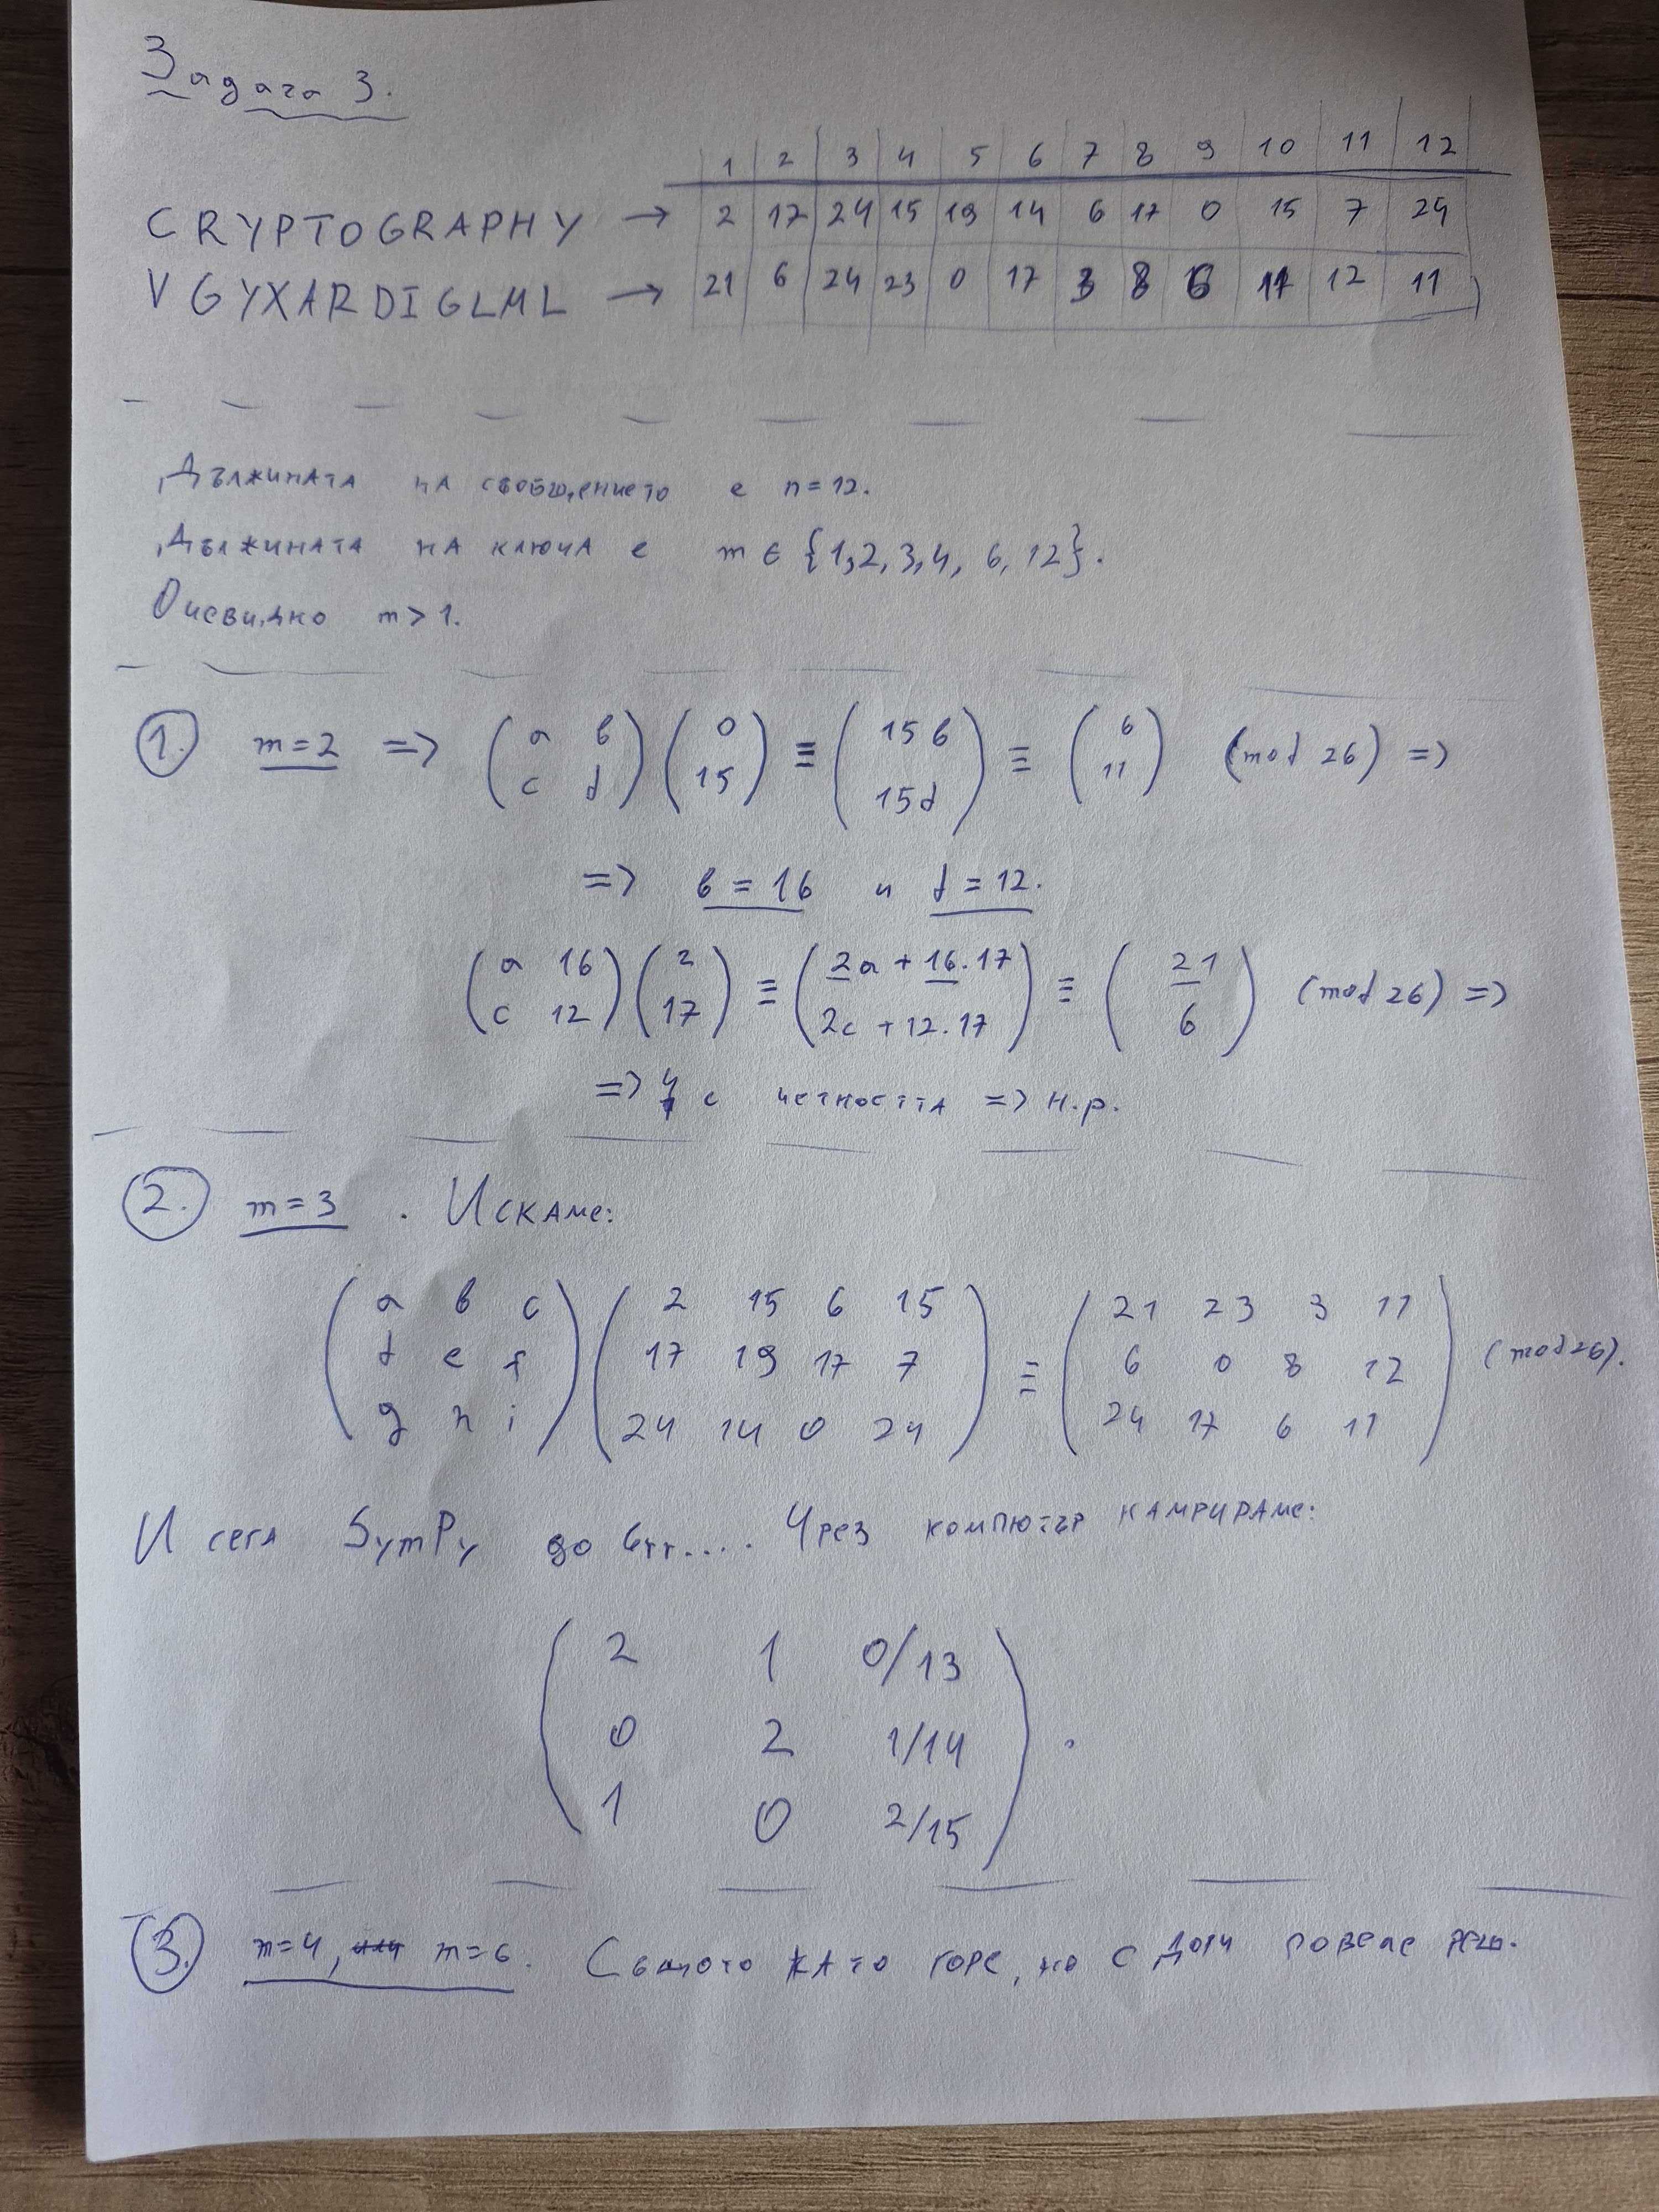 Задача 3.
1 2 3 4 5 6 7 8 9 10 11 12
CRYPTOGRAPHY → 2 17 24 15 19 14 6 17 0 15 7 24
VGYXARDIGLML → 21 6 24 23 0 17 3 8 6 11 12 11
Дължината на съобщението е n=12.
Дължината на ключа е m ∈ {1,2,3,4, 6, 12}.
Очевидно m>1.
1. m=2 => (a b; c d) (0; 15) ≡ (15b; 15d) ≡ (6; 11) (mod 26) =>
=> b = 16 и d = 12.
(a 16; c 12) (2; 17) ≡ (2a + 16.17; 2c + 12.17) ≡ (21; 6) (mod 26) =>
=> ↯ с четността => н.р.
2. m=3 . Искаме:
(a b c; d e f; g h i) (2 15 6 15; 17 19 17 7; 24 14 0 24) ≡ (21 23 3 11; 6 0 8 12; 24 17 6 11) (mod 26).
И сега SymPy до .... Чрез компютър намираме:
(2 1 0/13; 0 2 1/14; 1 0 2/15).
3. m=4, m=6. Същото като горе, но с дори повече реш.